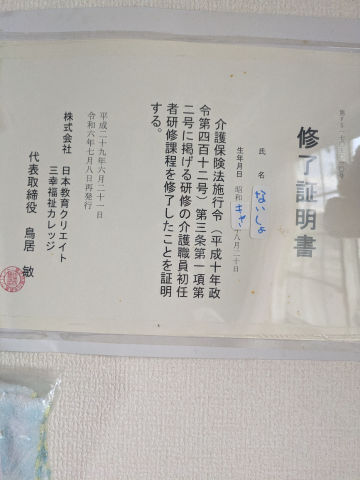 修了証明書
氏名 ないしょ
生年月日 昭和 八月二十日
介護保険法施行令（平成十年政
令第四百十二号）第三条第一項第
二号に掲げる研修の介護職員初任
者研修課程を修了したことを証明
する。
平成二十九年六月二十一日
令和六年七月八日再発行
株式会社 日本教育クリエイト
三幸福祉カレッジ
代表取締役 鳥居 敏